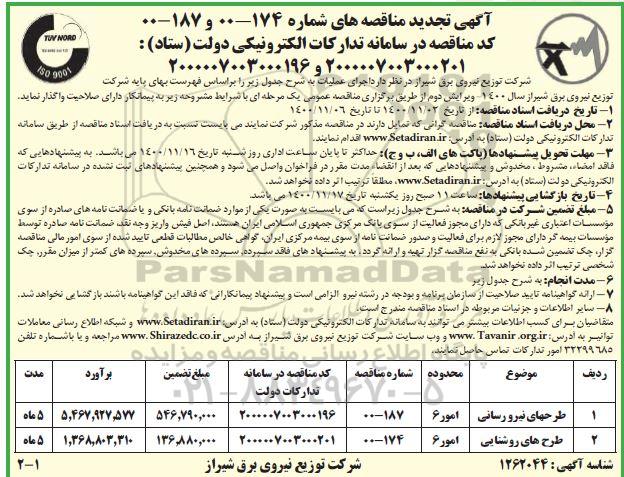 آگهی تجدید مناقصه های شماره ۱۷۴-۰۰ و ۱۸۷-۰۰
کد مناقصه در سامانه تدارکات الکترونیکی دولت (ستاد) :
۲۰۰۰۰۰۷۰۰۳۰۰۰۲۰۱ و ۲۰۰۰۰۰۷۰۰۳۰۰۰۱۹۶
TUV NORD
ISO 9001
شرکت توزیع نیروی برق شیراز در نظر دارد اجرای عملیات به شرح جدول زیر را براساس فهرست بهای پایه شرکت
توزیع نیروی برق شیراز سال ۱۴۰۰- ویرایش دوم از طریق برگزاری مناقصه عمومی یک مرحله ای با شرایط مشروحه زیر به پیمانکار دارای صلاحیت واگذار نماید.
۱- تاریخ دریافت اسناد مناقصه: از تاریخ ۱۴۰۰/۱۱/۰۲ تا تاریخ ۱۴۰۰/۱۱/۰۶
۲- محل دریافت اسناد مناقصه: مناقصه گرانی که تمایل دارند در مناقصه مذکور شرکت نمایند می بایست نسبت به دریافت اسناد مناقصه از طریق سامانه
تدارکات الکترونیکی دولت (ستاد) به آدرس: www.Setadiran.ir اقدام نمایند.
۳- مهلت تحویل پیشنهادها (پاکت های الف، ب و ج): حداکثر تا پایان ساعت اداری روز شنبه تاریخ ۱۴۰۰/۱۱/۱۶ می باشد. به پیشنهادهایی که
فاقد امضاء، مشروط ، مخدوش و پیشنهادهایی که بعد از انقضاء مدت مقرر در فراخوان واصل می شود و همچنین پیشنهادهای ثبت نشده در سامانه تدارکات
الکترونیکی دولت (ستاد) به آدرس: www.Setadiran.ir، مطلقا ترتیب اثر داده نخواهد شد.
۴- تاریخ بازگشایی پیشنهادها: ساعت ۱۱ صبح روز یکشنبه تاریخ ۱۴۰۰/۱۱/۱۷ می باشد.
۵- مبلغ تضمین شرکت در مناقصه: به شرح جدول زیر است که می بایست به صورت یکی از موارد ضمانت نامه بانکی و یا ضمانت نامه های صادره از سوی
مؤسسات اعتباری غیربانکی که دارای مجوز فعالیت از سوی بانک مرکزی جمهوری اسلامی ایران هستند، اصل فیش واریز وجه نقد، ضمانت نامه صادره توسط
مؤسسات بیمه گر دارای مجوز لازم برای فعالیت و صدور ضمانت نامه از سوی بیمه مرکزی ایران، گواهی خالص مطالبات قطعی تایید شده از سوی امور مالی مناقصه
گزار، چک تضمین شده بانکی به نفع مناقصه گزار تهیه و ارائه گردد. به پیشنهاد های فاقد سپرده، سپرده های مخدوش، سپرده های کمتر از میزان مقرر، چک
شخصی ترتیب اثر داده نخواهد شد.
۶- مدت انجام: به شرح جدول زیر
۷- ارائه گواهینامه تایید صلاحیت از سازمان برنامه و بودجه در رشته نیرو الزامی است و پیشنهاد پیمانکارانی که فاقد این گواهینامه باشند بازگشایی نخواهد شد.
۸- سایر اطلاعات و جزئیات مربوطه در اسناد مناقصه مندرج است.
متقاضیان برای کسب اطلاعات بیشتر می توانند به سامانه تدارکات الکترونیکی دولت (ستاد) به آدرس: www.Setadiran.ir و شبکه اطلاع رسانی معاملات
توانیر به آدرس: www. Tavanir .org.ir و وب سایت شرکت توزیع نیروی برق شیراز به آدرس www. Shirazedc.co.ir مراجعه و یا با شماره تلفن
۳۲۲۹۹۶۸۵ تماس حاصل نمایند.
ردیف موضوع محدوده شماره مناقصه کد مناقصه در سامانه تدارکات دولت مبلغ تضمین برآورد مدت
۱ طرحهای نیرو رسانی امور۶ ۱۸۷-۰۰ ۲۰۰۰۰۰۷۰۰۳۰۰۰۱۹۶ ۵۴۶,۷۹۰,۰۰۰ ۵,۴۶۷,۹۲۷,۵۷۷ ۵ ماه
۲ طرح های روشنایی امور۶ ۱۷۴-۰۰ ۲۰۰۰۰۰۷۰۰۳۰۰۰۲۰۱ ۱۳۶,۸۸۰,۰۰۰ ۱,۳۶۸,۸۰۳,۳۱۰ ۵ ماه
شناسه آگهی : ۱۲۶۲۰۴۴ شرکت توزیع نیروی برق شیراز ۲-۱
ParsNamadData
پایگاه اطلاع رسانی مناقصه و مزایده
۰۲۱-۸۸۳۴۹۶۷۰-۵